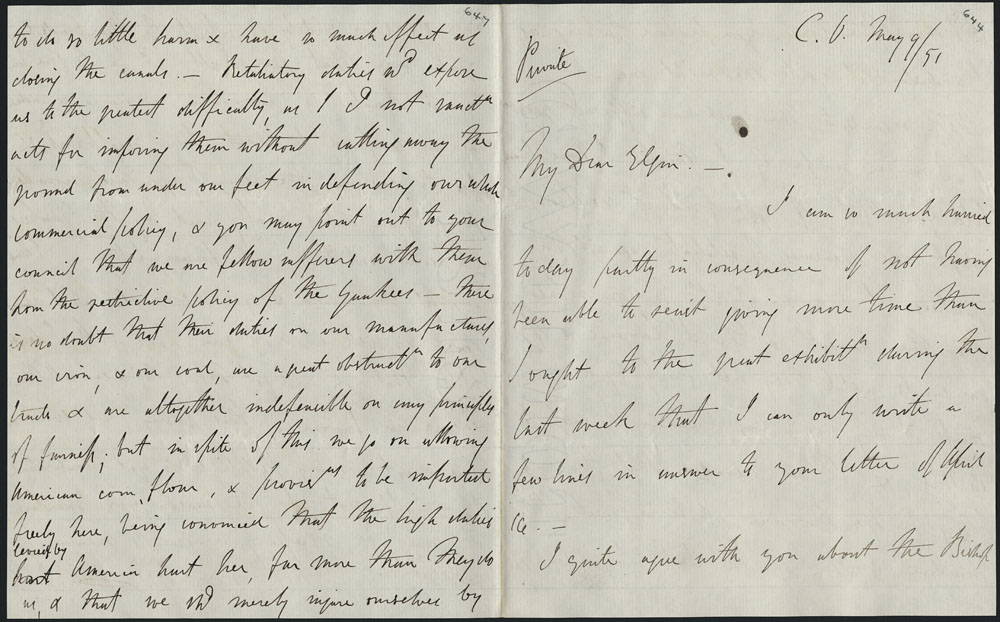 644
C. O. May 9/51
Private
My Dear Elgin. —
I am so much hurried
to day partly in consequence of not having
been able to resist giving more time than
I ought to the great exhibitn during the
last week that I can only write a
few lines in answer to your letter of April
—
I quite agree with you about the Bishop
647
to do so little harm & have so much effect as
closing the canals. — Retaliatory duties wd expose
us to the greatest difficulty, as I cd not sanctn
acts for imposing them without cutting away the
ground from under our feet in defending our whole
commercial policy, & you may point out to your
council that we are fellow sufferers with them
from the restrictive policy of the Yankees — there
is no doubt that their duties on our manufactures,
our iron, & our coal, are a great obstructn to our
trade & are altogether indefensible on any principles
of fairness; but in spite of this we go on allowing
American corn, flour, & provisns to be imported
freely here, being convinced that the high duties
levied by
America hurt her, far more than they do
us, & that we shd merely injure ourselves by